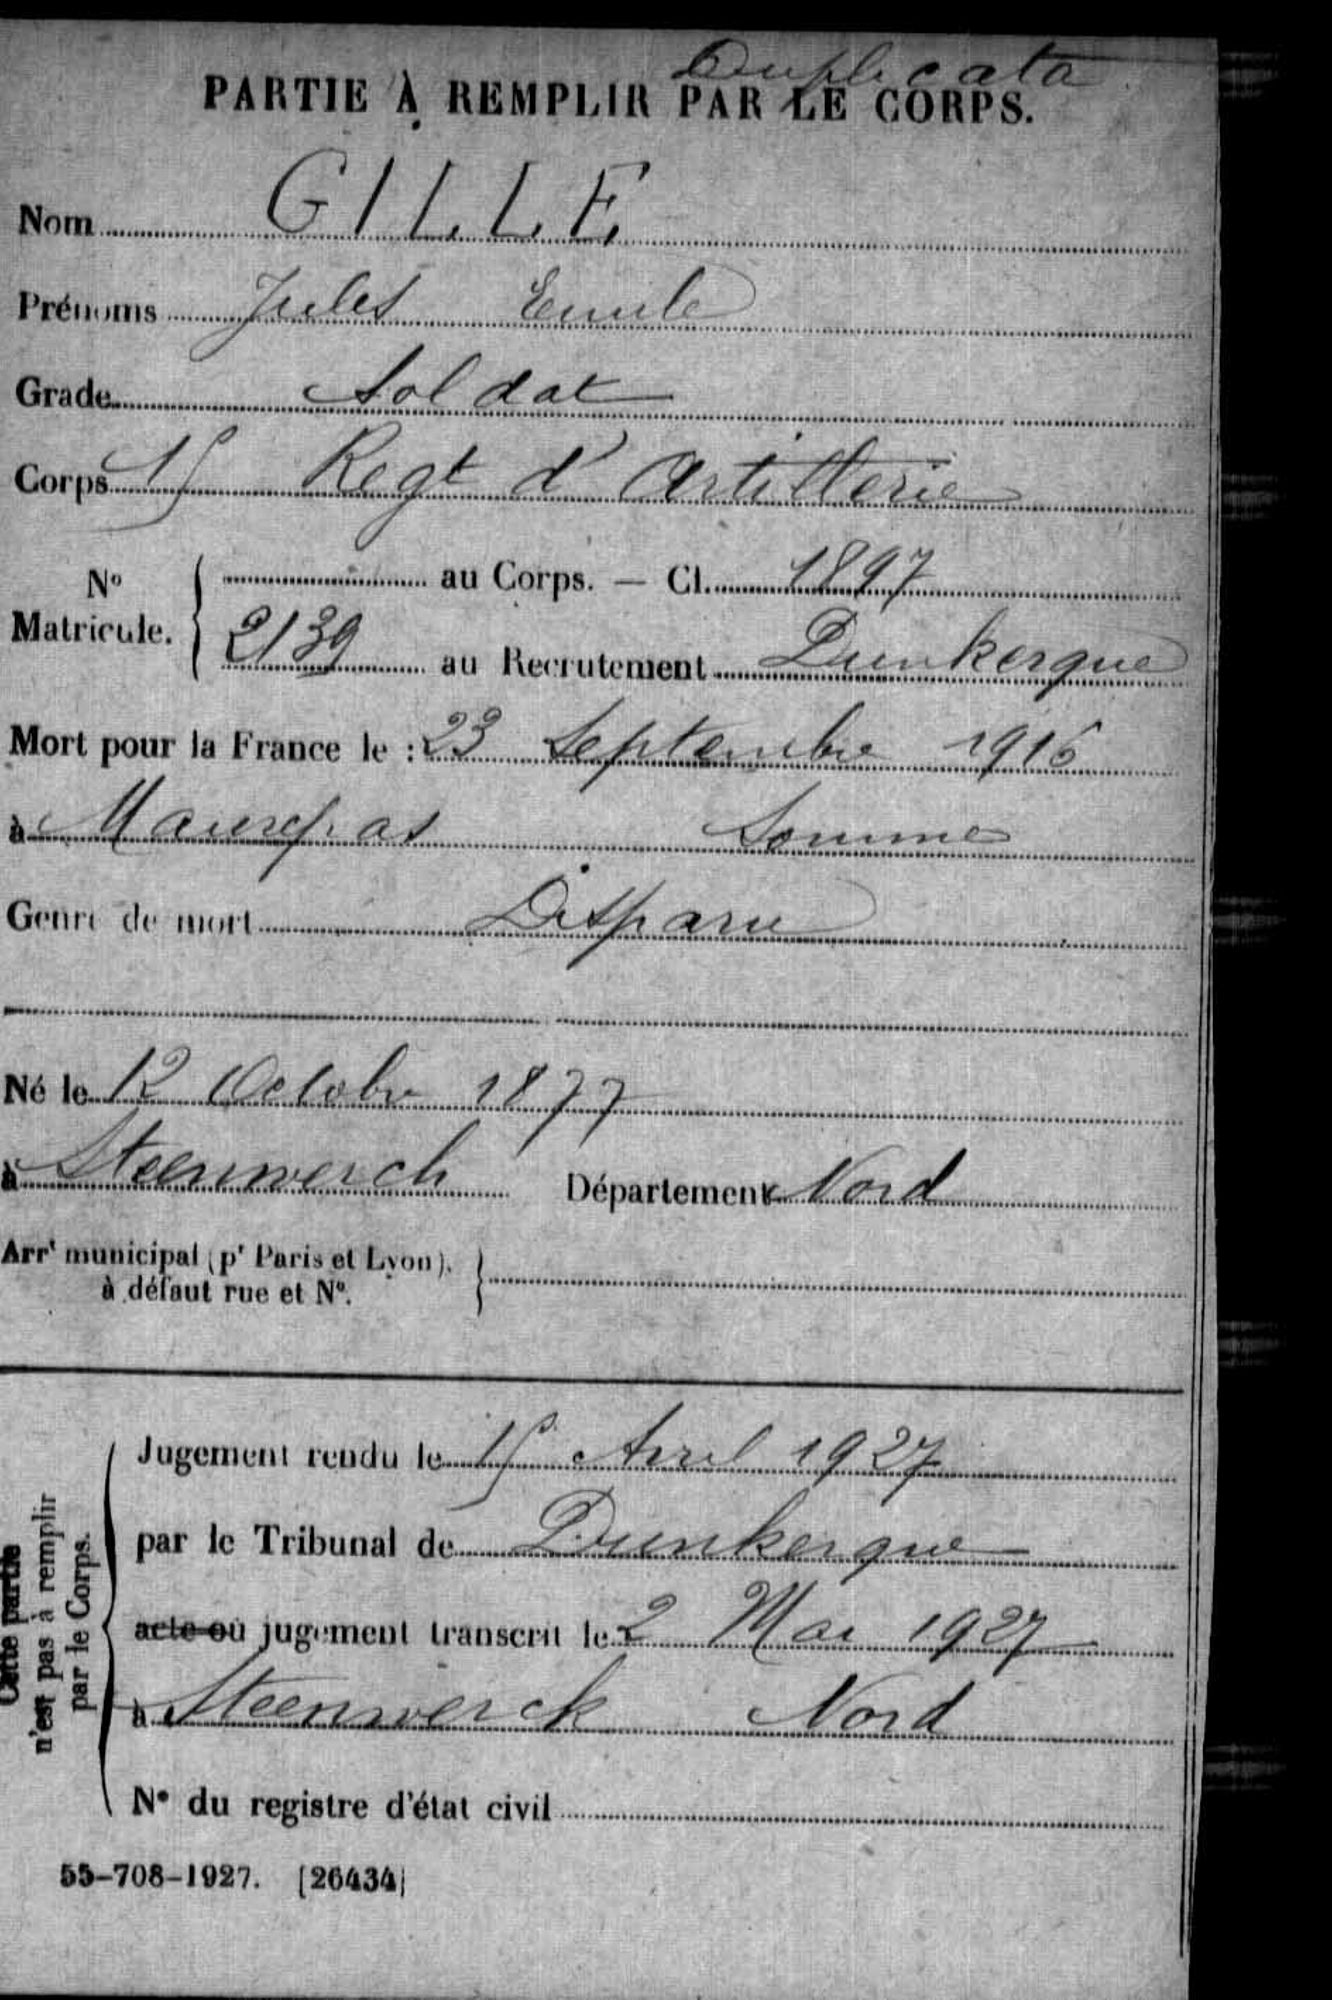 Duplicata
PARTIE À REMPLIR PAR LE CORPS.
Nom GILLE
Prénoms Jules Emile
Grade Soldat
Corps 15 Regt d'Artillerie
No Matricule. { au Corps. — Cl. 1897
2139 au Recrutement Dunkerque
Mort pour la France le : 23 Septembre 1916
à Maurepas Somme
Genre de mort Disparu
Né le 12 Octobre 1877
à Steenwerck Département Nord
Arrt municipal (pr Paris et Lyon), }
à défaut rue et No.
Cette partie
n'est pas à remplir
par le Corps.
Jugement rendu le 15 Avril 1927
par le Tribunal de Dunkerque
acte ou jugement transcrit le 2 Mai 1927
à Steenwerck Nord
No du registre d'état civil
55-708-1927. [26434]